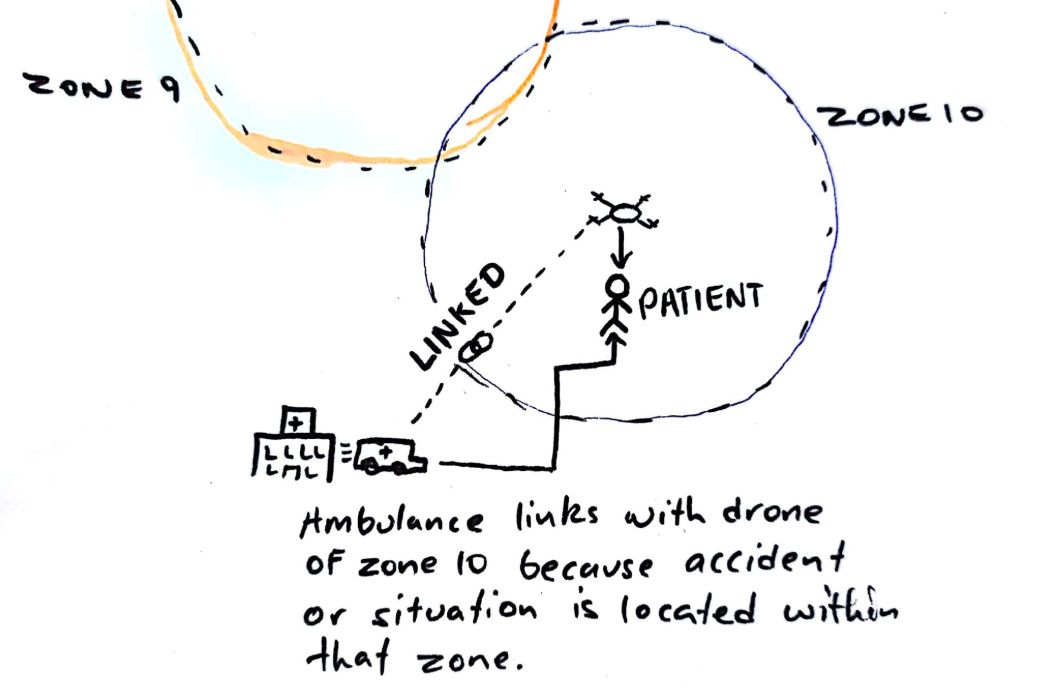 ZONE 9
ZONE 10
LINKED
PATIENT
Ambulance links with drone
of zone 10 because accident
or situation is located within
that zone.